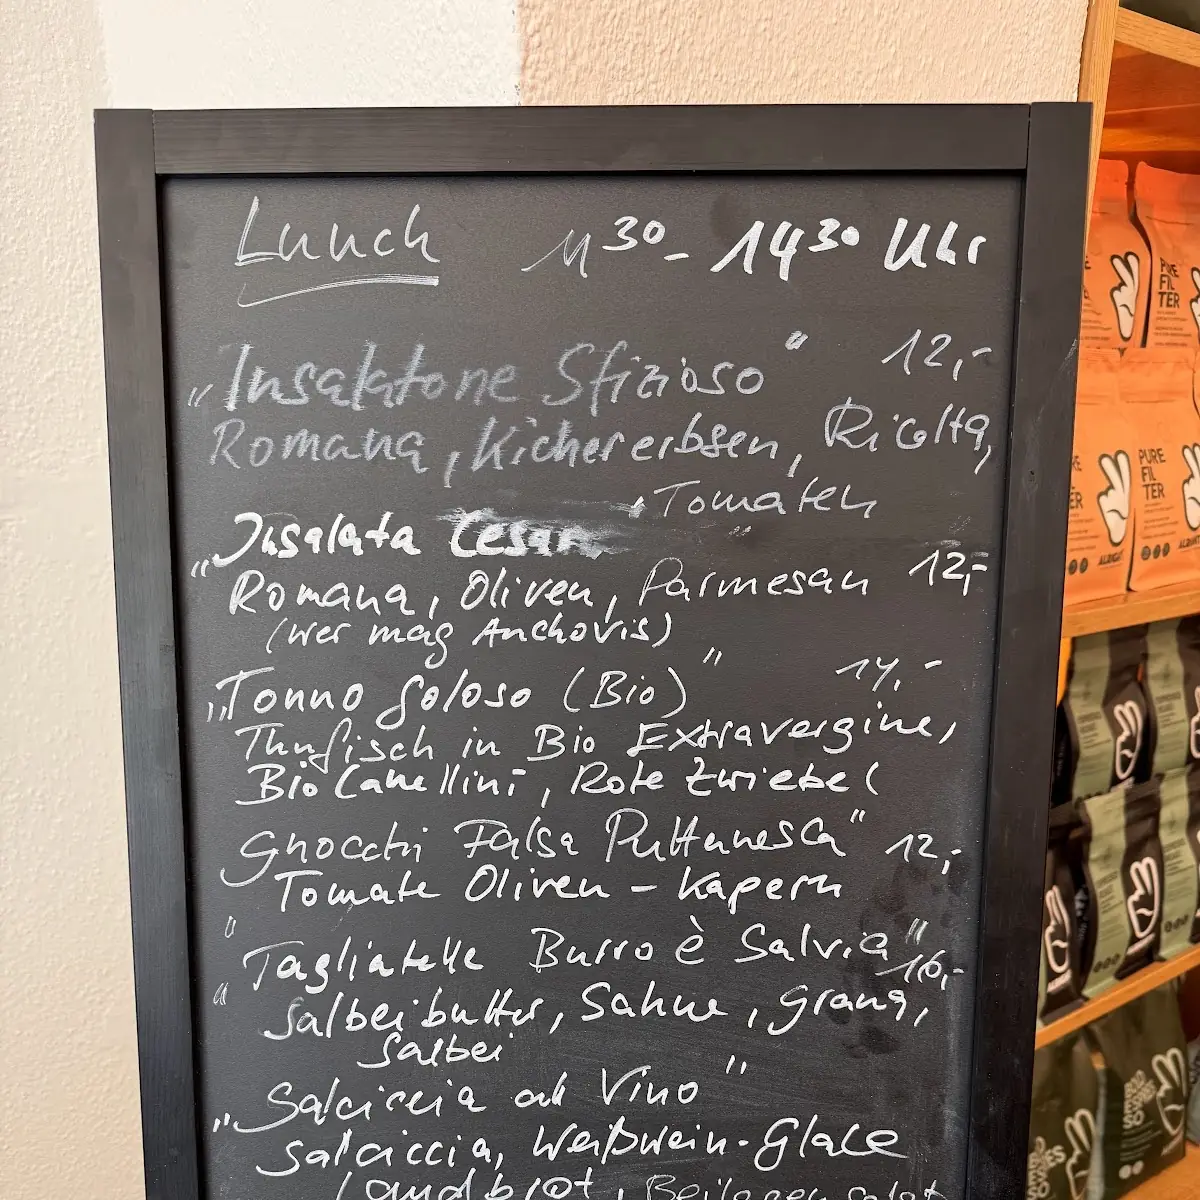 Lunch 11³⁰ - 14³⁰ Uhr
„Insalatone Sfizioso" 12,-
Romana, Kichererbsen, Ricotta,
, Tomaten
„Insalata Cesar" 12,-
Romana, Oliven, Parmesan
(wer mag Anchovis)
„Tonno Goloso (Bio)" 14,-
Thnfisch in Bio Extravergine,
Bio Canellini, Rote Zwiebel
„Gnocchi Falsa Puttanesca" 12,-
Tomate Oliven - Kapern
„Tagliatelle Burro è Salvia" 16,-
Salbeibutter, Sahne, Grana,
Salbei
„Salciccia al Vino"
Salciccia, Weißwein-Glace
Landbrot, Beilagensalat
PURE
FIL
TER
PURE
FIL
TER